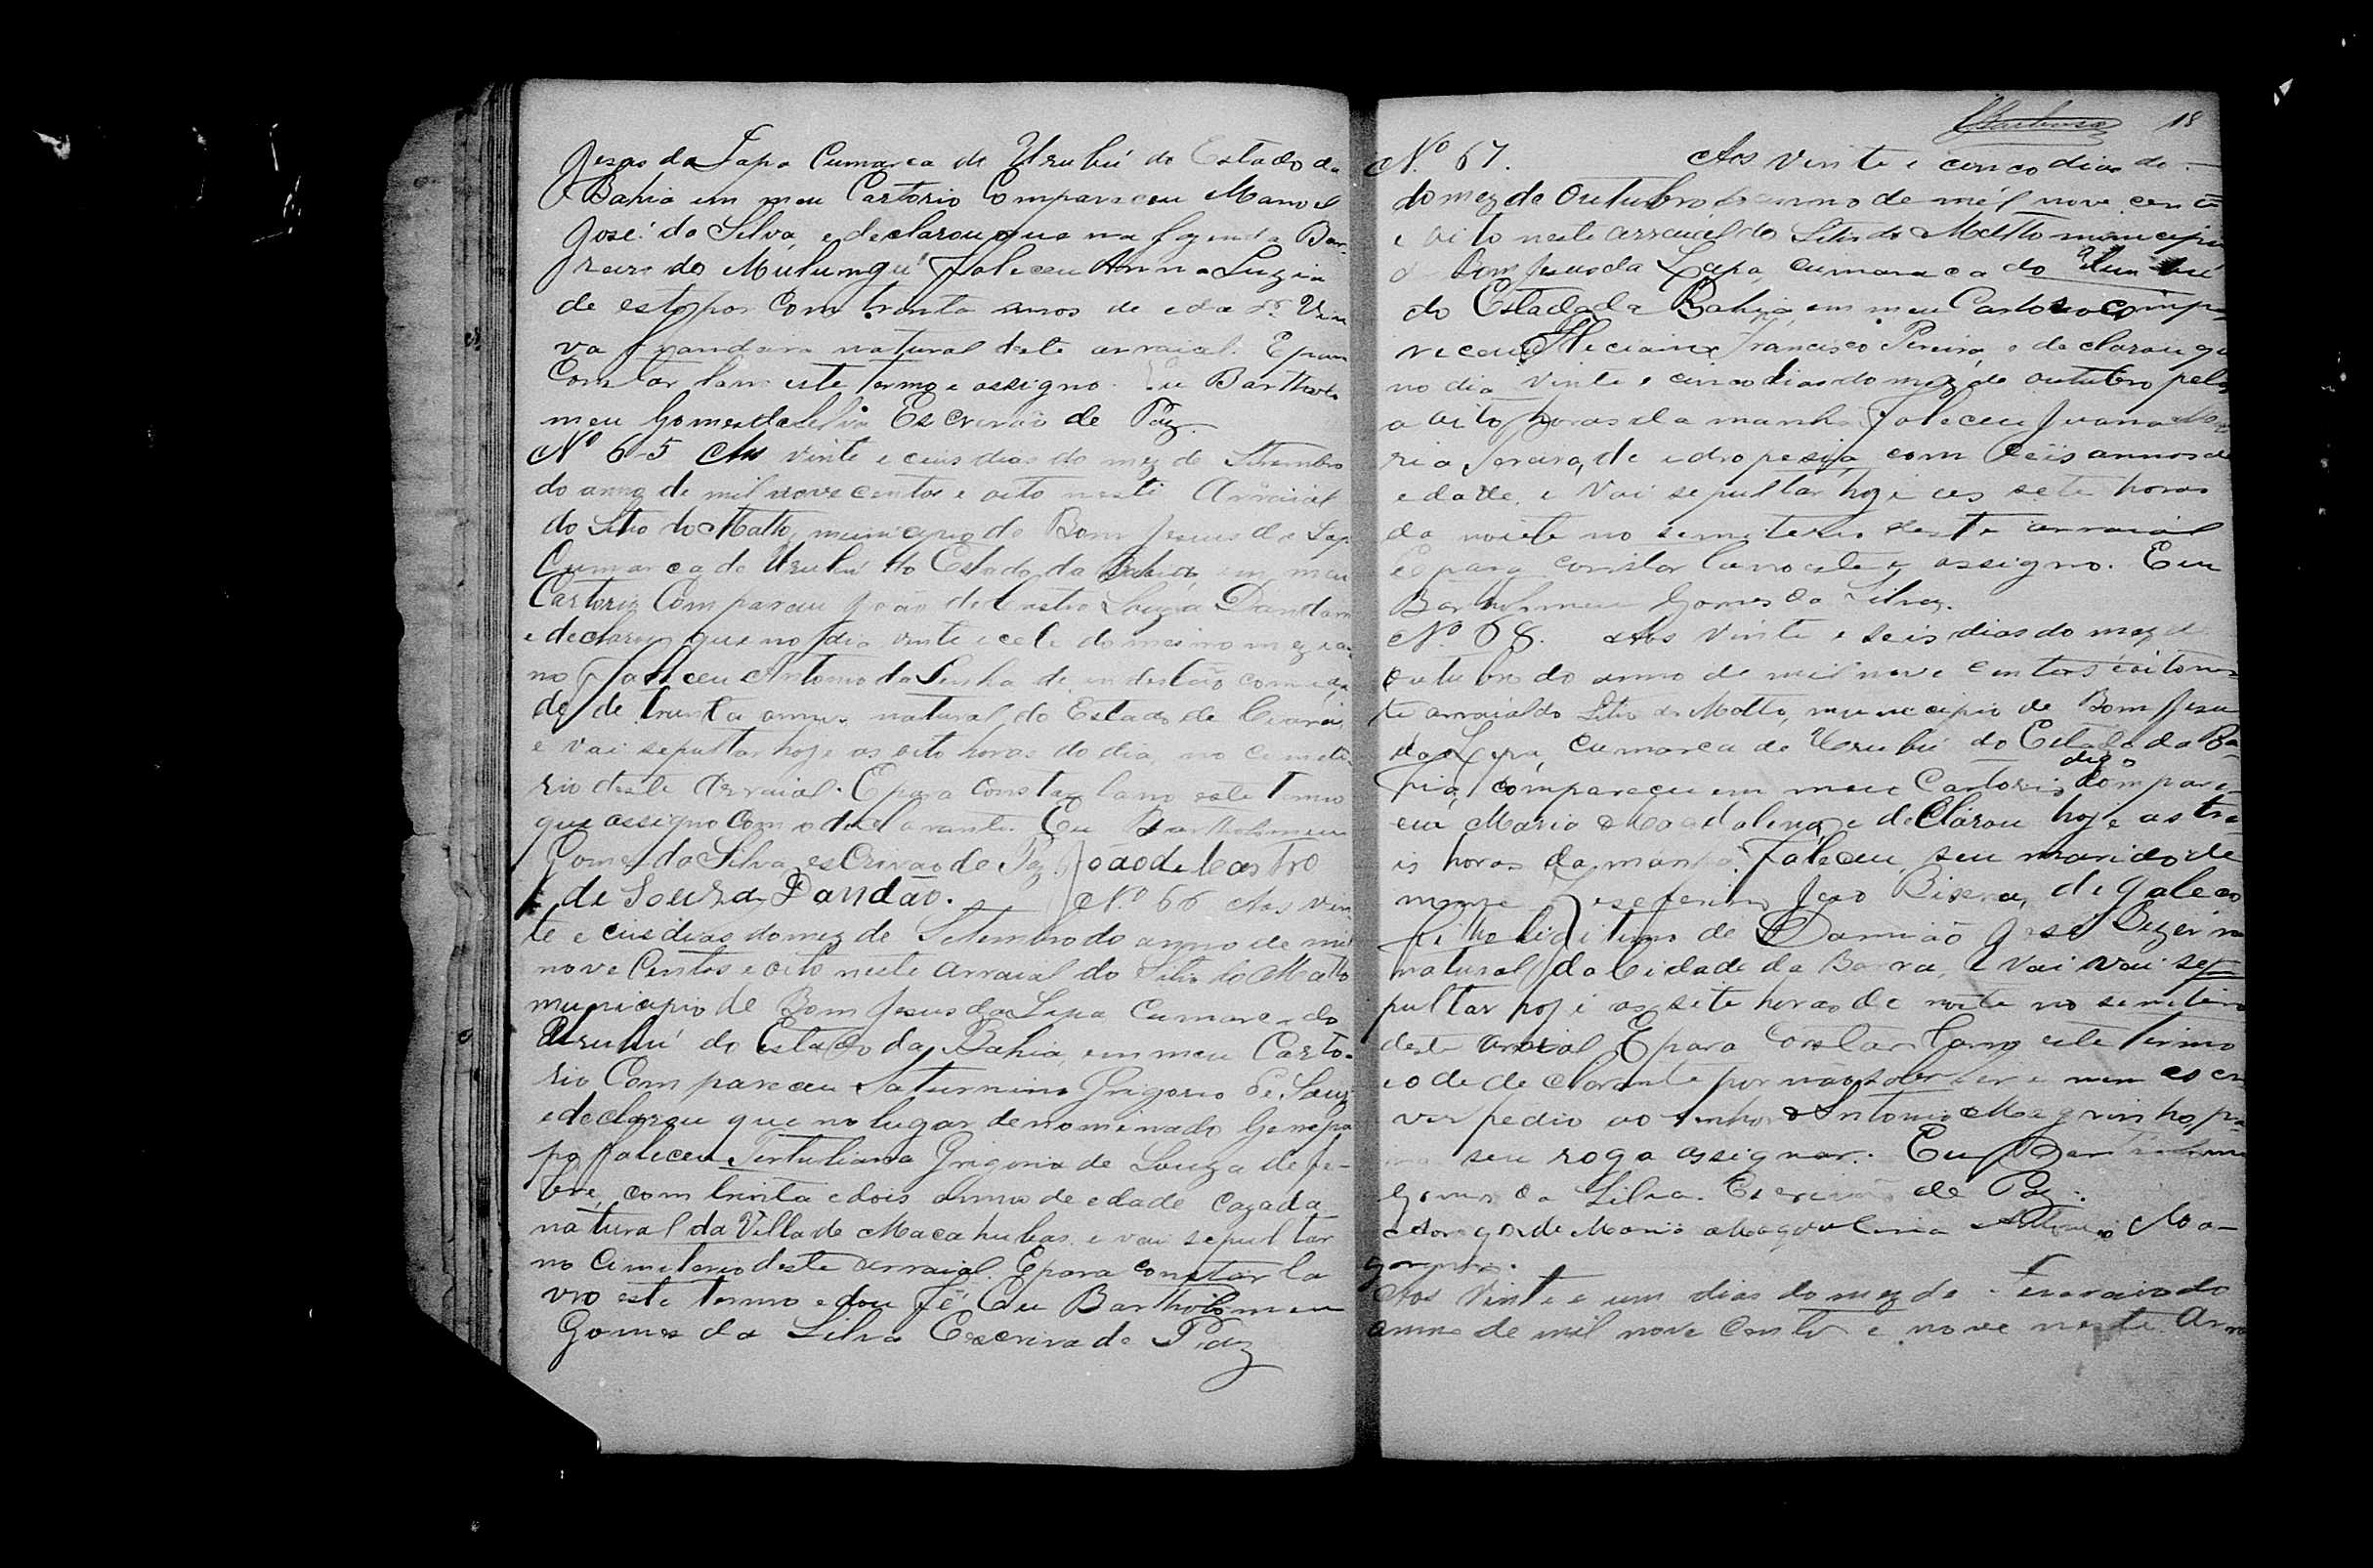 Jesus da Lapa Cumarca de Urubú do Estado da
Bahia em meu Cartorio Compareceu Manoel
José da Silva, e declarou que na fazenda Bar-
reiro do Mulungú faleceu Anna Luzia
de estopor com trinta annos de edade
natural deste arraial. E para
Constar lavro este termo e assigno. Eu Bartholo
meu Gomes da Silva Escrivão de Paz.
Nº 65 Aos vinte e ceis dias do mez de Setembro
do anno de mil nove centos e oito neste Arraial
do Sitio do Matto, municipio de Bom Jesus da Lapa
Cumarca de Urubú do Estado da Bahia, em meu
Cartorio Compareceu João de Castro Souza Dandão
e declarou que no dia vinte e cete do mesmo mez e an
no faleceu Antonio da Cunha de indestão com eda
de de trinta annos natural do Estado de Ceará,
e vai sepultar hoje as oito horas do dia, no cemite
rio deste Arraial. E para Constar lavro este termo
que assigno com o declarante. Eu Bartholomeu
Gomes da Silva, escrivão de Paz João de Castro
de Souza Dandão. Nº 66 Aos vin
te e ceis dias do mez de Setembro do anno de mil
nove Centos e oito neste Arraial do Sitio do Matto
municipio de Bom Jesus da Lapa Cumarca do
Urubú do Estado da Bahia, em meu Carto-
rio Compareceu Saturnino Grigorio de Souza
e declarou que no lugar denominado Genepa
po faleceu Tertuliana Grigoria de Souza de fe-
bre, com trinta e dois annos de edade cazada
natural da Villa de Macahubas. e vai sepultar
no Cimiterio deste arraial. E para constar la
vro este termo e dou fé Eu Bartholomeu
Gomes da Silva Escriva de Paz
18
Nº 67. Aos vinte e cinco dias do
do mez de Outubro do anno de mil nove cento
e oito neste arraial do Sitio do Matto municipio
de Bom Jesus da Lapa, cumarca do Urubú
do Estado da Bahia, em meu Cartorio compa
receu Francisco Pereira, e declarou que
no dia vinte e cinco dias do mez de outubro pelas
a oito horas da manha faleceu Juana Ma
ria de edropesija com ceis annos de
edade, e vai sepultar hoje as sete horas
da noite no semiterio deste arraial
E para constar lavro este e assigno. Eu
Bartholomeu Gomes da Silva.
Nº 68. Aos vinte e seis dias do mez de
outubro do anno de mil nove centos e oito nes
te arraial do Sitio do Matto, municipio de Bom Jesus
da Lapa, cumarca de Urubú do Estado da Ba-
hia, compareceu em meu Cartorio digo compare-
ceu Maria Magdalena, e declarou hoje as tre-
is horas da manhã faleceu seu marido de
nome Zeseferino José Biserra, de
filho ligitimo de Damião José Bizerra
natural da Cidade da Barra, e vai vai se
pultar hoje as sete horas de noite no semiterio
deste arraial E para constar lavro este termo
e o de declarante por não saber ler e nem escre
ver pedio ao senhor Antonio Magrinho, pa
seu rogo assignar. Eu Bartholomeu
Gomes da Silva. Escrivão de Paz.
Arogo de Maria Magdalena Antonio Ma-
grinho.
Aos vinte e um dias do mez de Fevereiro do
anno de mil nove Centos e nove neste Arra